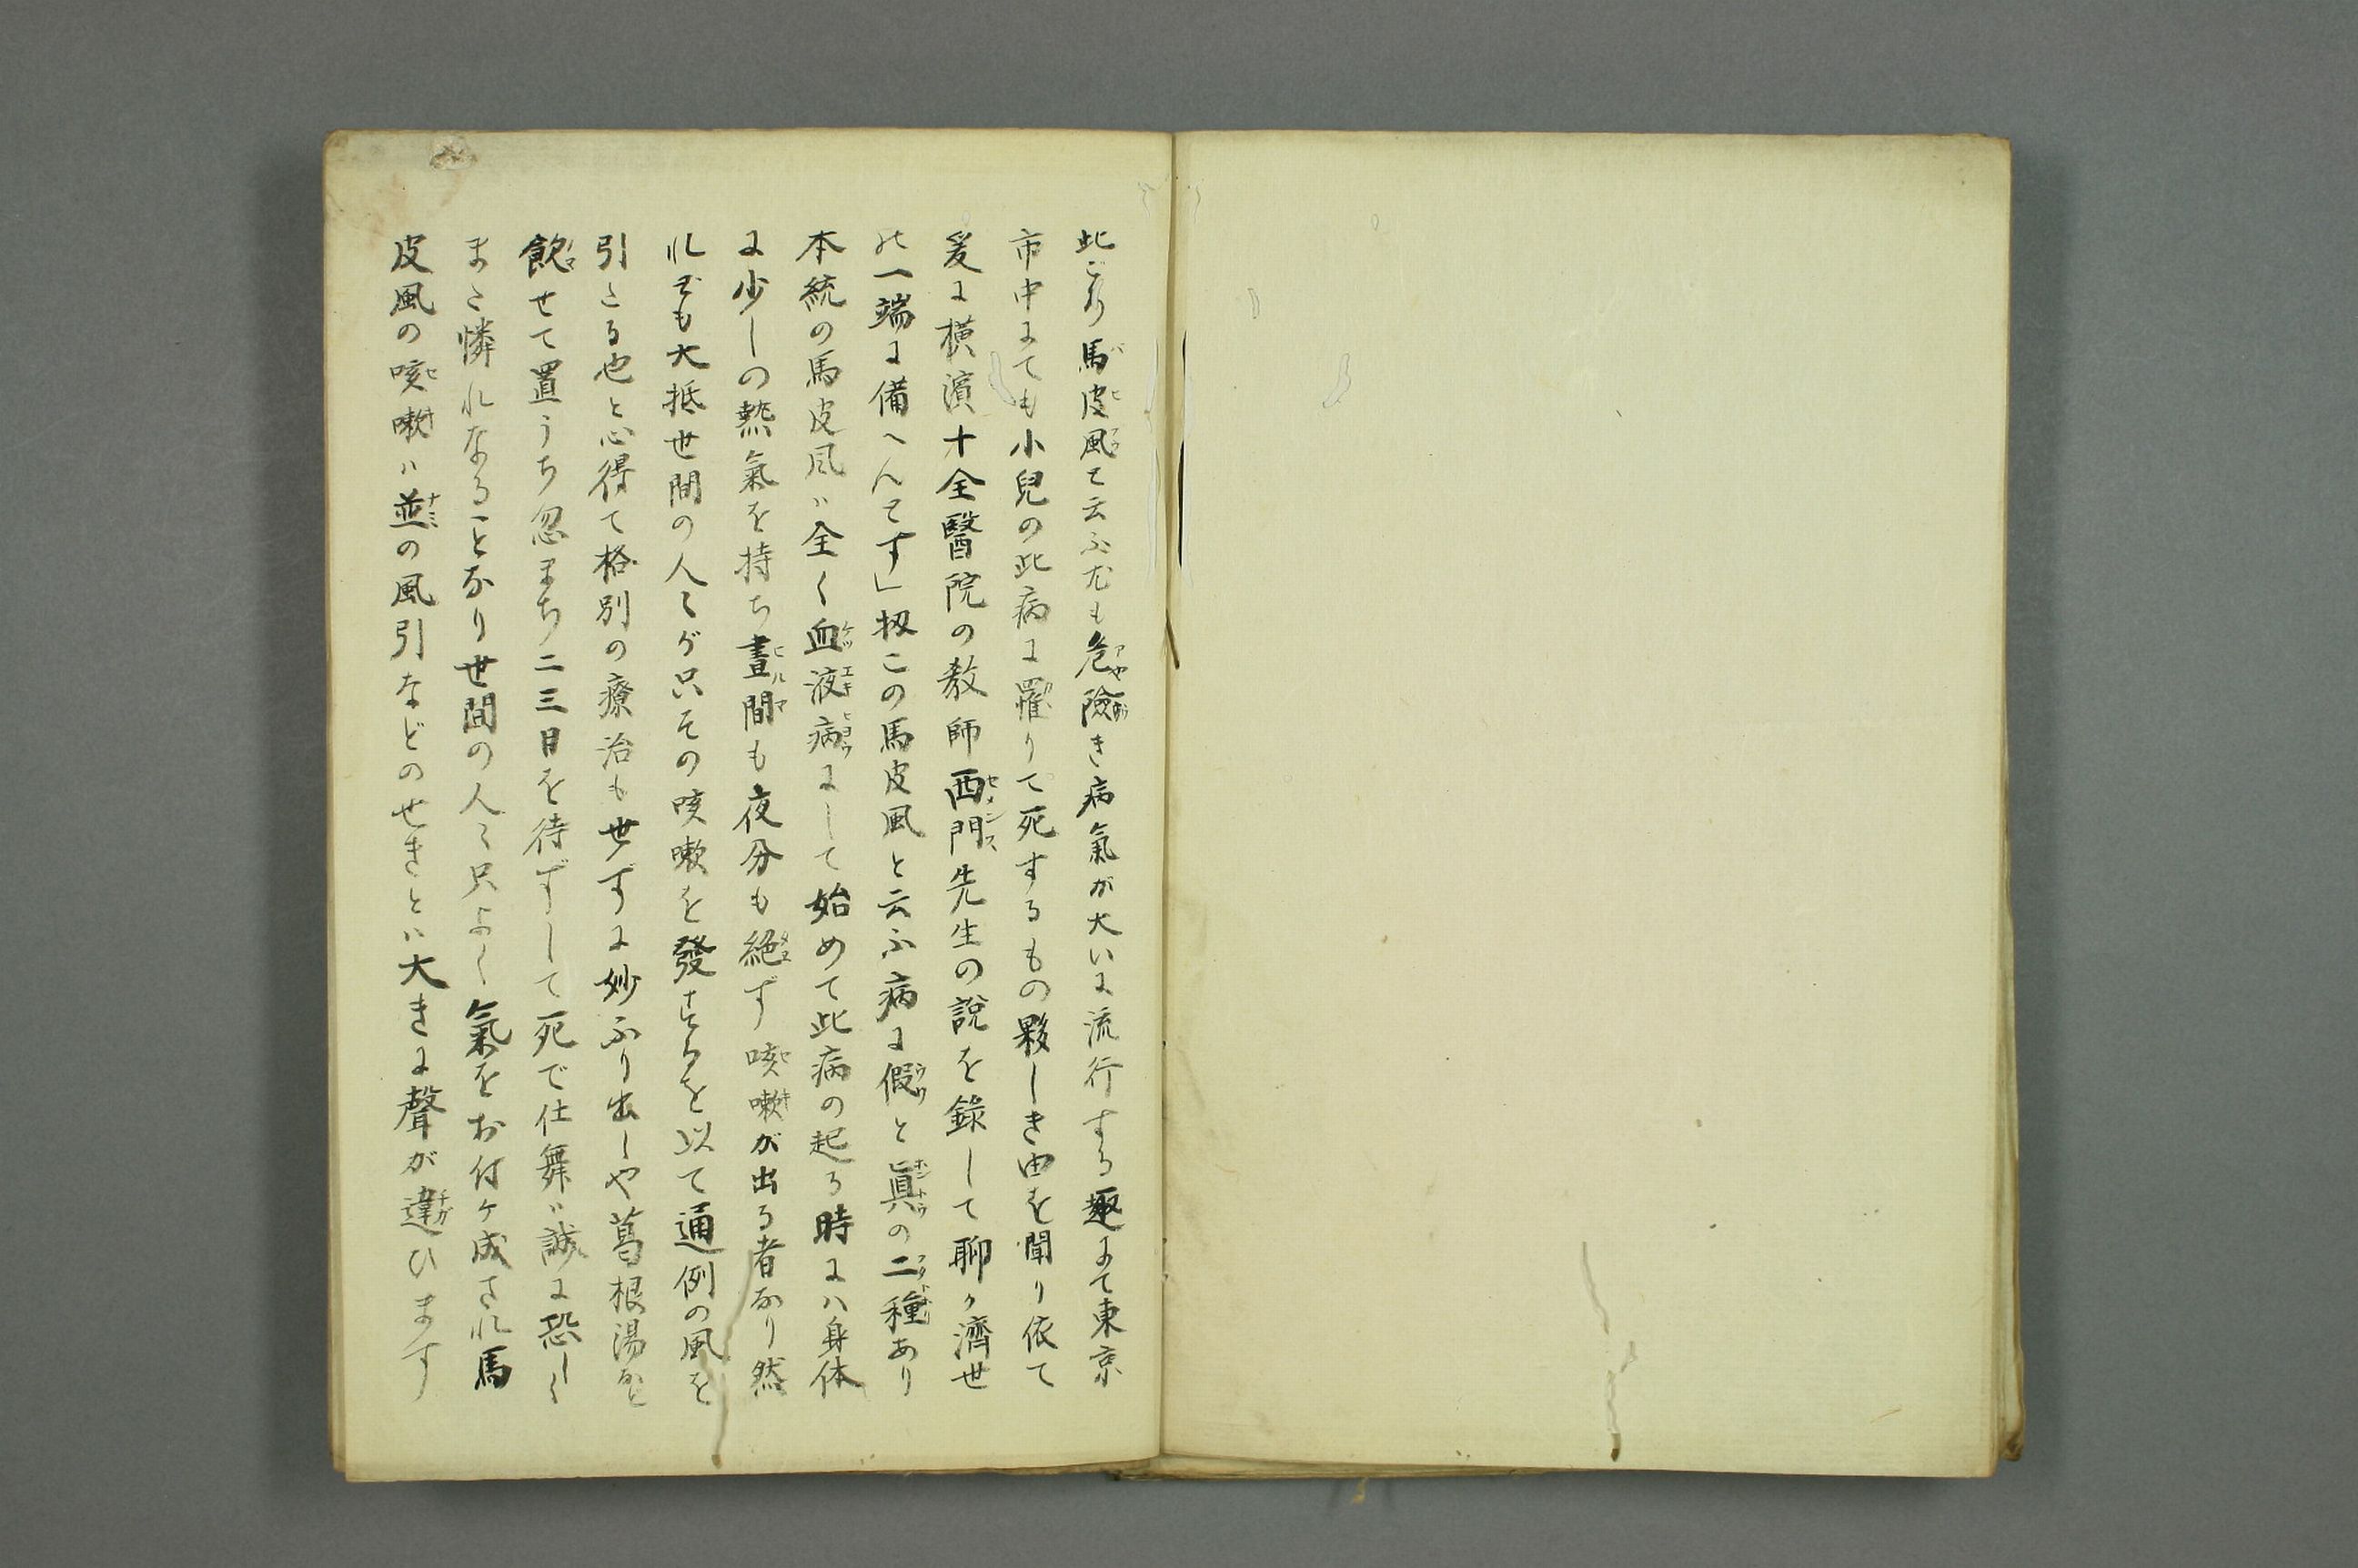 此ごろ馬皮風て云ふ尤も危險き病氣が大いに流行する趣きにて東京
市中にても小兒の此病に罹りて死するもの夥しき由を聞り依て
爰に横濱十全醫院の教師西門先生の說を錄して聊か濟世
の一端に備へんとす」扨この馬皮風と云ふ病に假と眞の二種あり
本統の馬皮風ハ全く血液病にして始めて此病の起る時にハ身体
に少しの熱氣を持ち晝間も夜分も絕ず咳嗽が出る者なり然
れども大抵世間の人々が只その咳嗽を發するを以て通例の風を
引たる也と心得て格別の療治も世ずに妙ふり出しや葛根湯など
飲せて置うち忽まち二三日を待ずして死で仕舞ハ誠に恐しく
また憐れなることなり世間の人々只よく氣をお付ケ成され馬
皮風の咳嗽ハ並の風引などのせきとハ大きに聲が違ひます